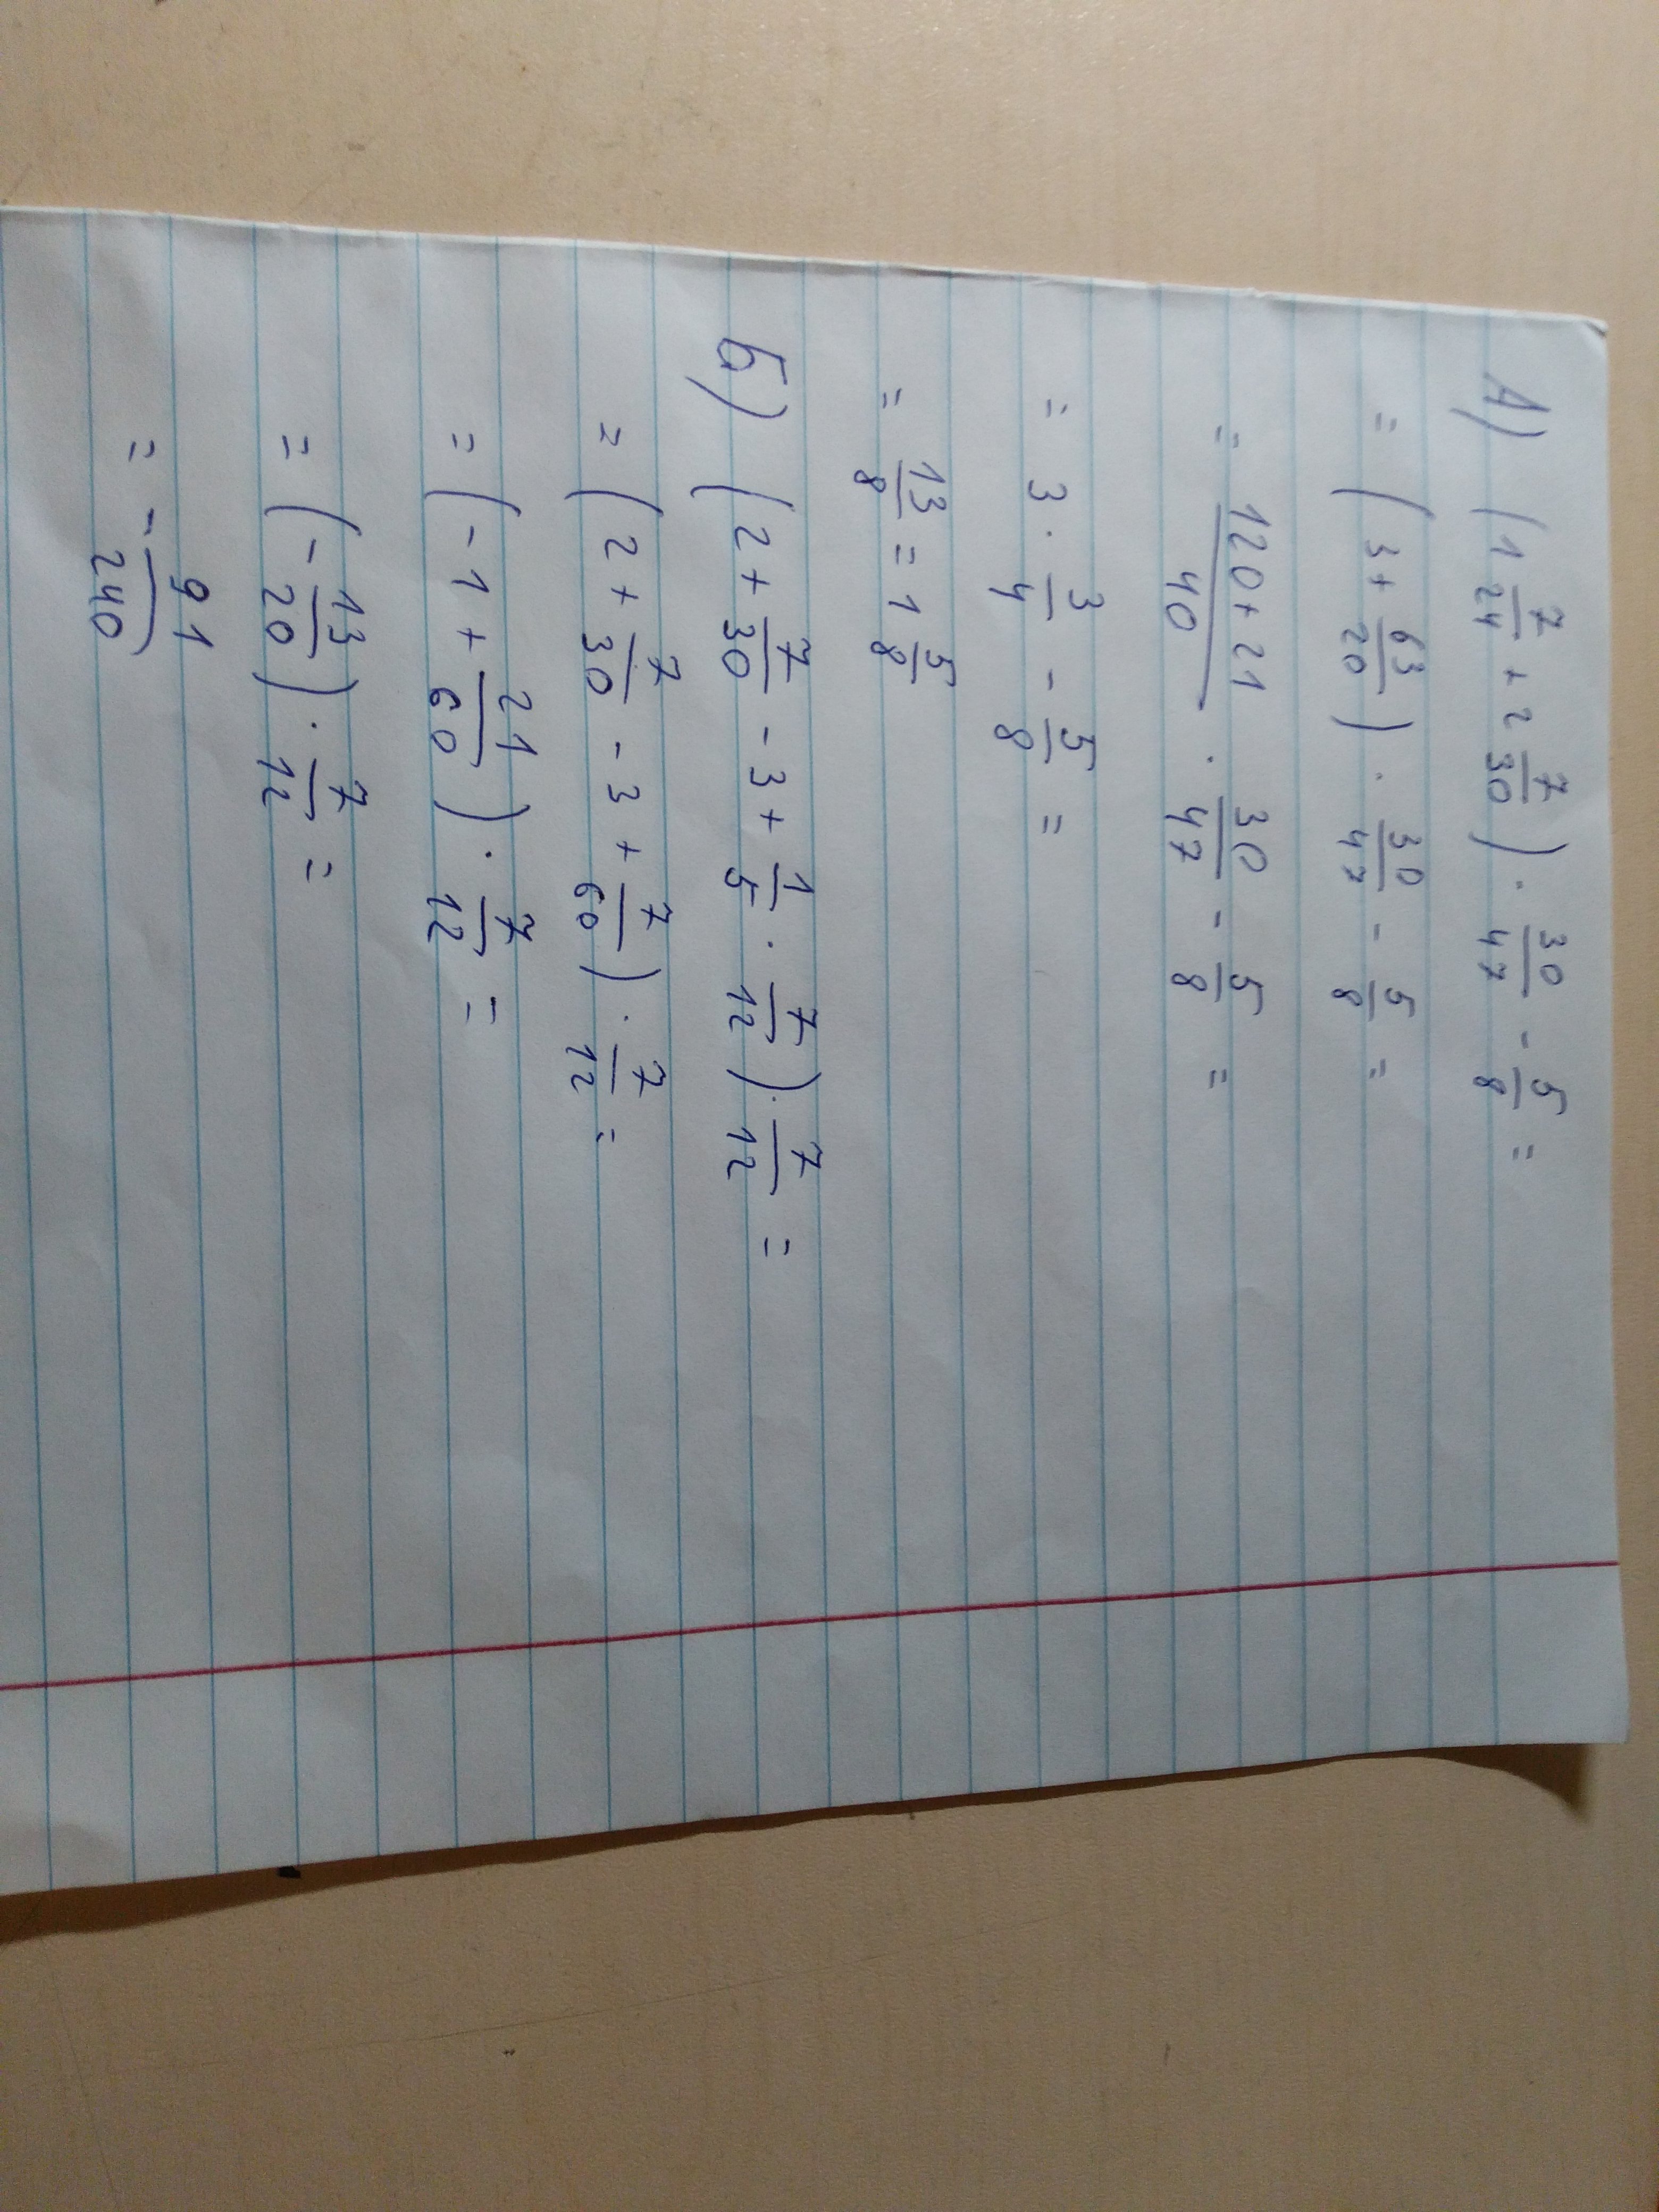 А) (1 7/24 + 2 7/30) · 30/47 - 5/8 =
= (3 + 63/20) · 30/47 - 5/8 =
= 120+21/40 · 30/47 - 5/8 =
= 3 · 3/4 - 5/8 =
= 13/8 = 1 5/8
Б) (2 + 7/30 - 3 + 1/5 · 7/12) · 7/12 =
= (2 + 7/30 - 3 + 7/60) · 7/12 =
= (-1 + 21/60) · 7/12 =
= (- 13/20) · 7/12 =
= - 91/240